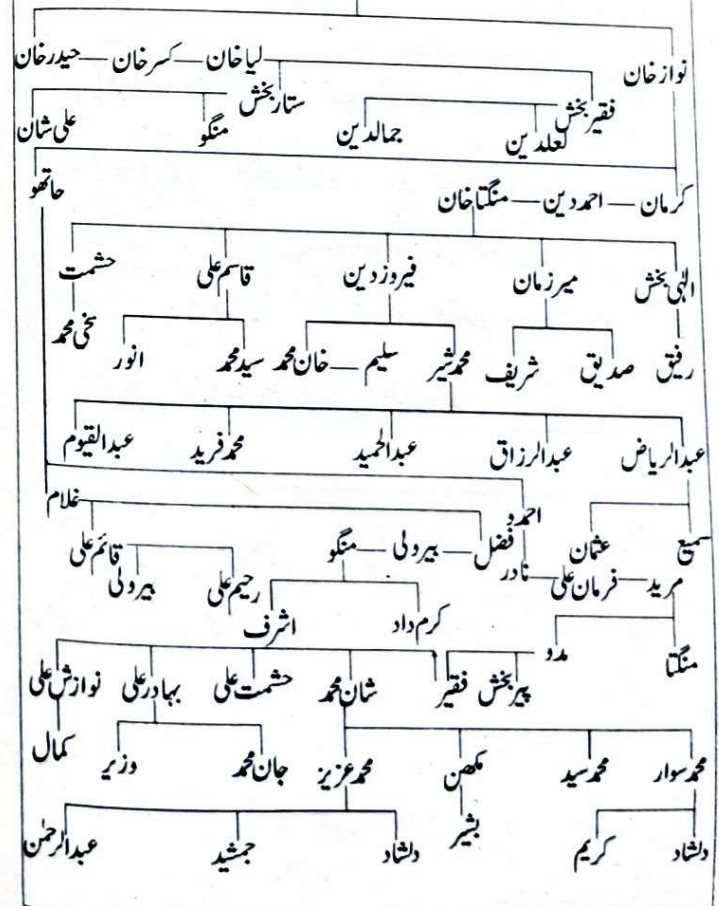 نواز خان لیا خان — کسر خان — حیدر خان
فقیر بخش ستار بخش
لعلدین جمالدین منگو علی شان
کرمان — احمد دین — منگتا خان حاتھو
الٰہی بخش میر زمان فیروز دین قاسم علی حشمت
رفیق صدیق شریف محمد شیر سلیم — خان محمد سید محمد انور سخی محمد
عبدالریاض عبدالرزاق عبدالحمید محمد فرید عبدالقیوم
احمدو غلام
سمیع عثمان فضل — بیرولی — منگو قائم علی
مرید — فرمان علی — نادر رحیم علی بیرولی
کرم داد اشرف
منگتا مدو
پیر بخش فقیر شان محمد حشمت علی بہادر علی نوازش علی
محمد سوار محمد سید مکھن محمد عزیز جان محمد وزیر کمال
دلشاد کریم بشیر دلشاد جمشید عبدالرحمٰن